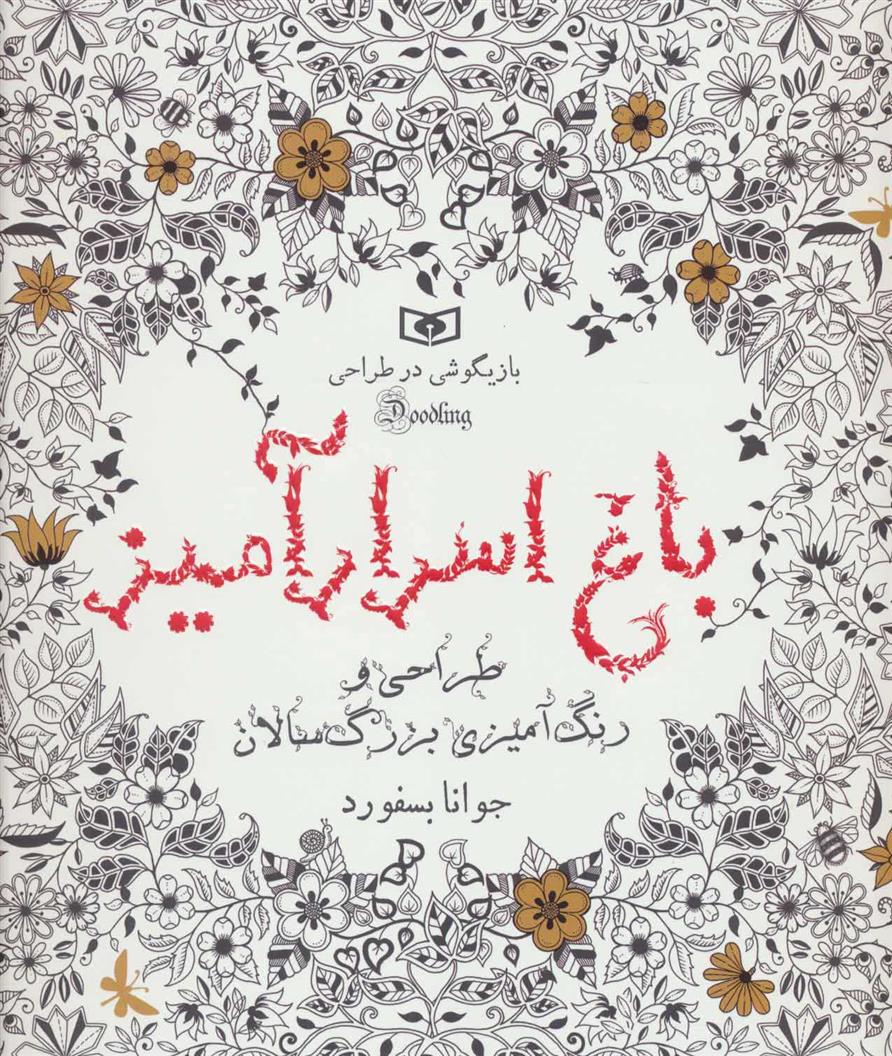 بازیگوشی در طراحی
Doodling
باغ اسرارآمیز
طراحی و
رنگ‌آمیزی بزرگ‌سالان
جوانا بسفورد